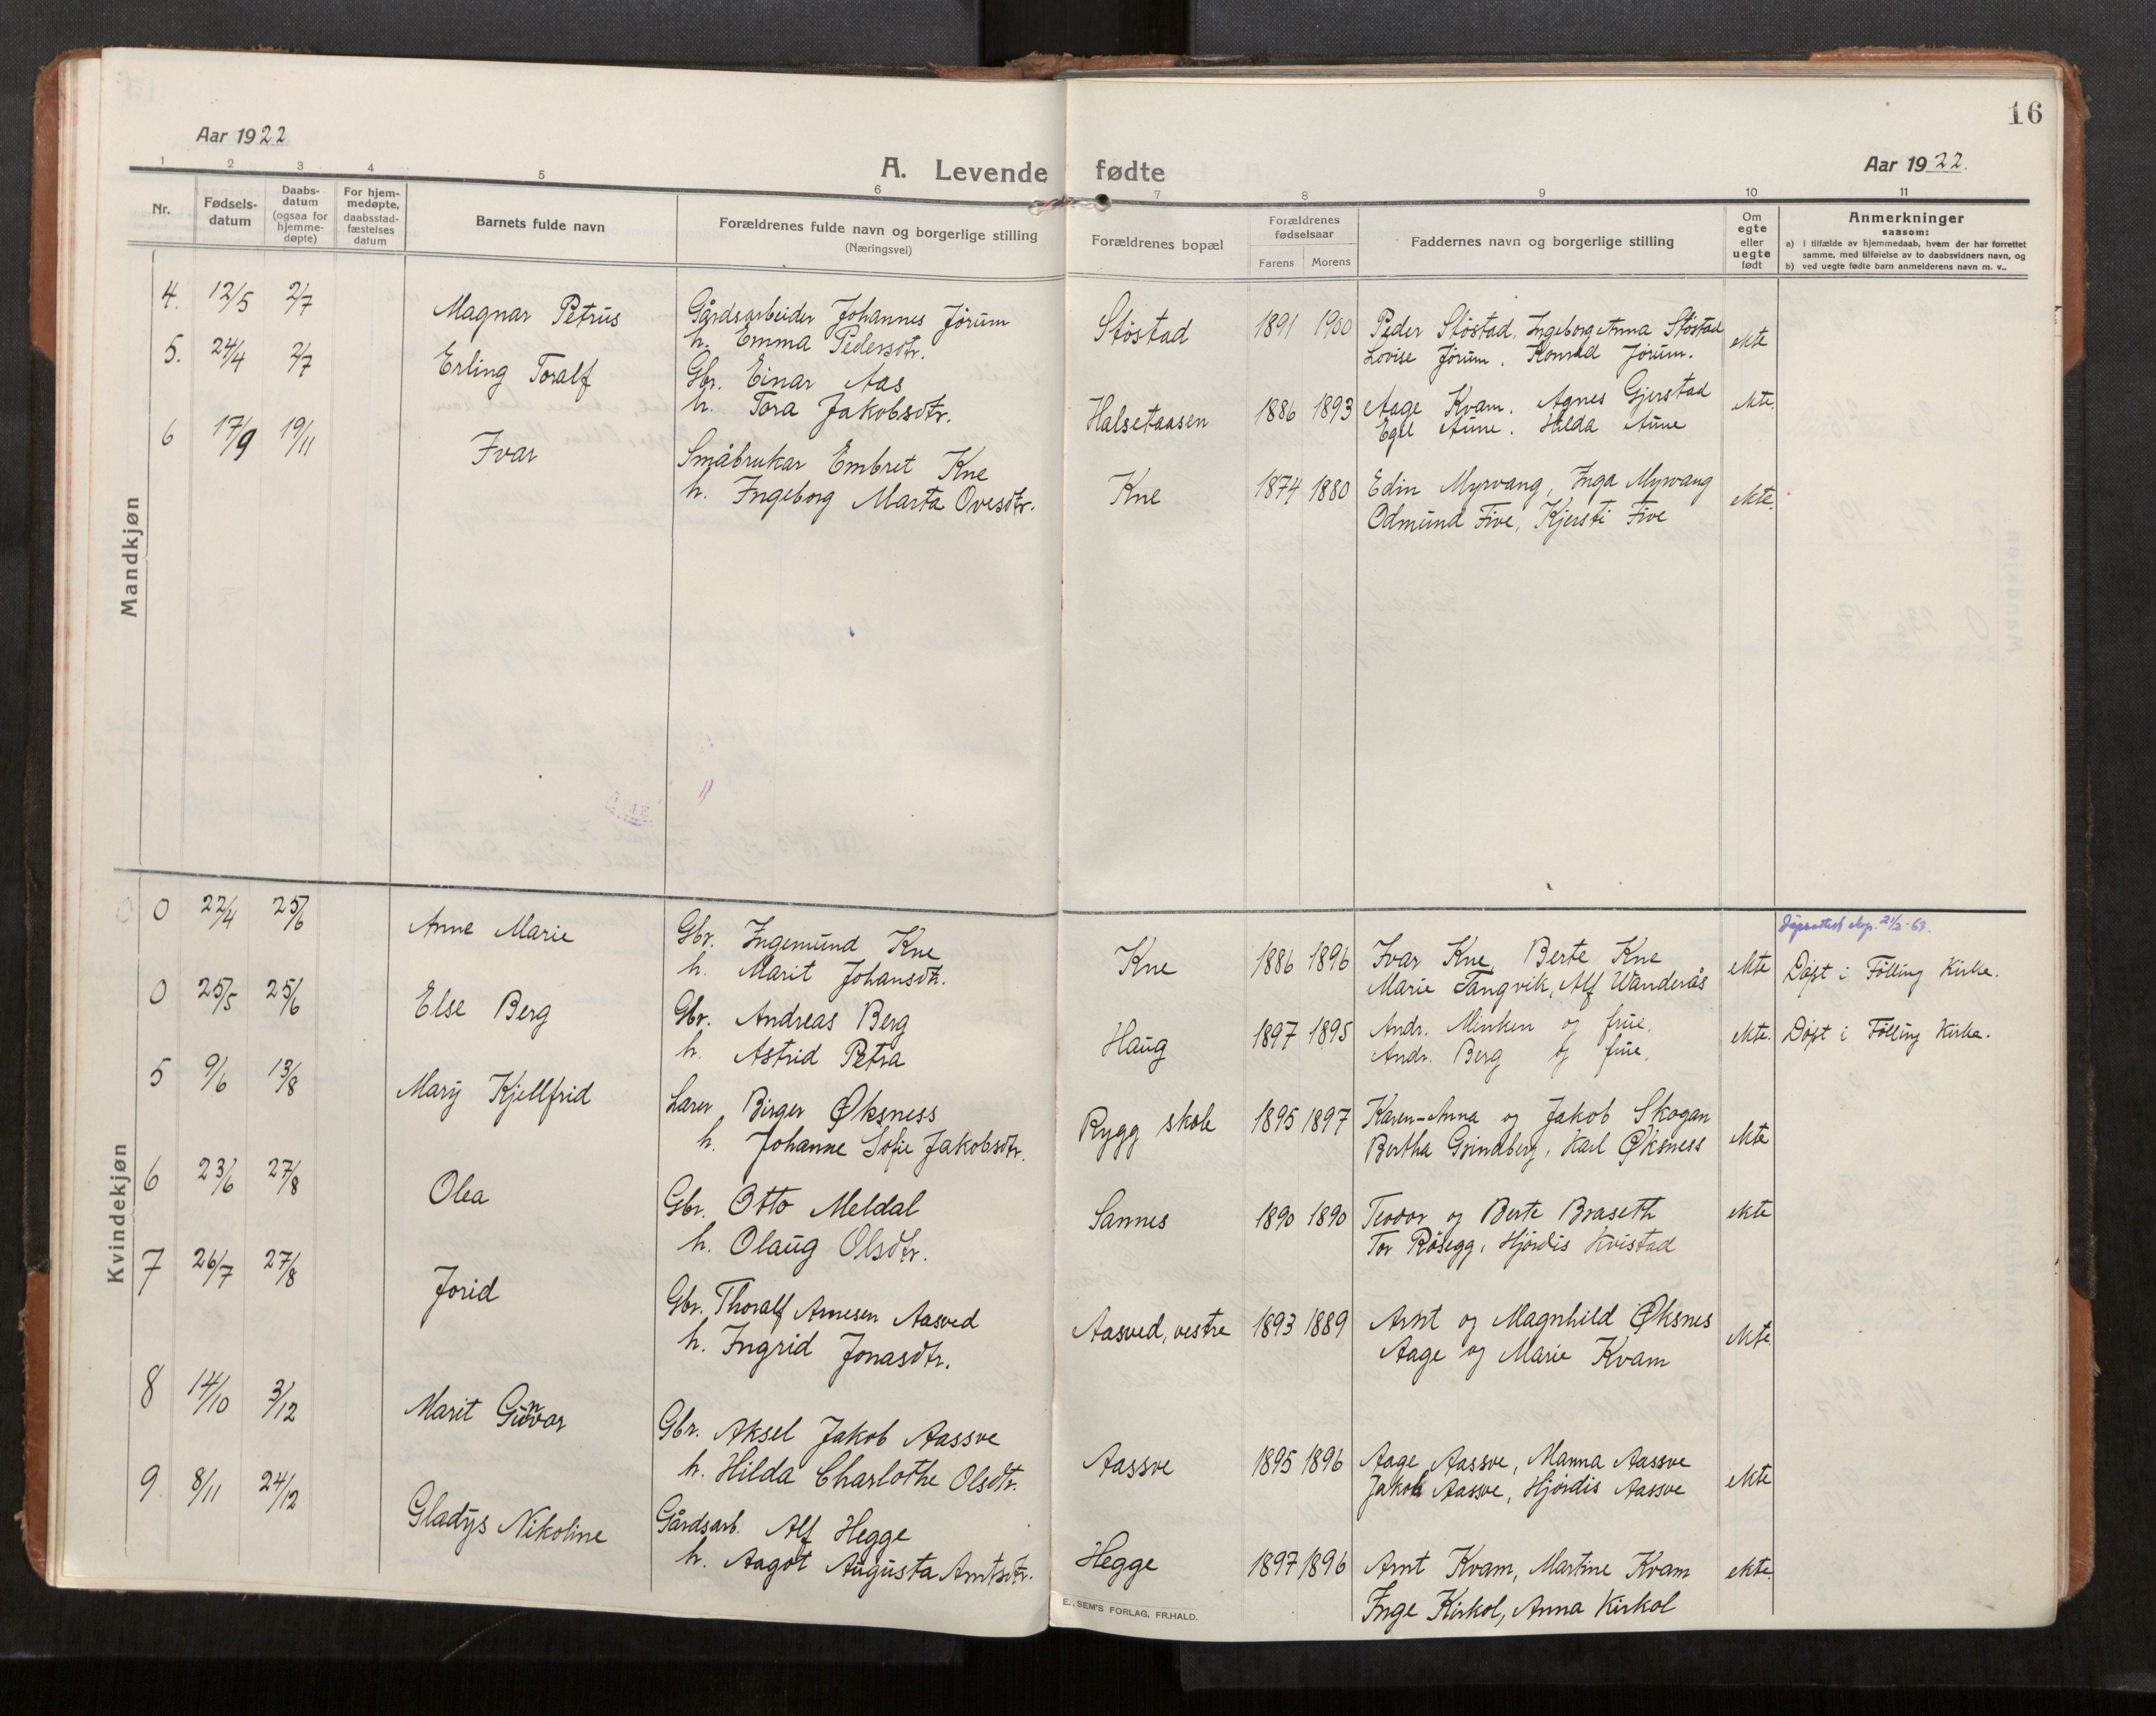 16
Aar 1922
A. Levende fødte
Aar 1922.
1 2 3 4 5 6 7 8 9 10 11
Nr.
Fødsels-
datum
Daabs-
datum
(ogsaa for
hjemme-
døpte)
For hjem-
medøpte,
daabsstad-
fæstelses
datum
Barnets fulde navn
Forældrenes fulde navn og borgerlige stilling
(Næringsvei)
Forældrenes bopæl
Forældrenes
fødselsaar
Farens Morens
Faddernes navn og borgerlige stilling
Om
egte
eller
uegte
født
Anmerkninger
saasom:
a) i tilfælde av hjemmedaab, hvem der har forrettet
samme, med tilføielse av to daabsvidners navn, og
b) ved uegte fødte barn anmelderens navn m. v..
Mandkjøn
4. 12/5 2/7 Magnar Petrus Gårdsarbeider Johannes Jörum Stöstad 1891 1900 Peder Stöstad, Ingeborg Anna Stöstad ekte
h. Emma Pedersdtr. Lovise Jörum. Konrad Jörum.
5. 24/4 2/7 Erling Toralf Gbr. Einar Aas Halsetaasen 1886 1893 Aage Kvam. Agnes Gjerstad ekte.
h. Tora Jakobsdtr. Egil Aune. Hilda Aune
6 17/9 19/11 Ivar Småbrukar Embret Kne Kne 1874 1880 Edin Myrvang, Inga Myrvang ekte.
h. Ingeborg Marta Ovesdtr. Odmund Five, Kjersti Five
Kvindekjøn
0 22/4 25/6 Anne Marie Gbr. Ingemund Kne Kne 1886 1896 Ivar Kne Berte Kne ekte Döpt i Fölling Kirke.
h. Marit Johansdtr. Marie Tangvik, Alf Wanderås
0 25/5 25/6 Else Berg Gbr. Andreas Berg Haug 1897 1895 Andr. Minken og frue. ekte. Döpt i Fölling Kirke.
h. Astrid Petra Andr. Berg og frue.
5 9/6 13/8 Mary Kjellfrid Lærer Birger Øksness Rygg skole 1895 1897 Karen-Anna og Jakob Skogan ekte
h. Johanne Sofie Jakobsdtr. Bertha Grindberg, Karl Øksness
6 23/6 27/8 Olea Gbr. Otto Meldal Sannes 1890 1890 Teodor og Berte Braseth ekte
h. Olaug Olsdtr. Tor Rösegg, Hjördis Kvistad
7 26/7 27/8 Jorid Gbr. Thoralf Arnesen Aasved Aasved, vestre 1893 1889 Arnt og Magnhild Øksnes ekte.
h. Ingrid Jonasdtr. Aage og Marie Kvam
8 14/10 3/12 Marit Gunvor Gbr. Aksel Jakob Aassve Aassve 1895 1896 Aage Aassve, Manna Aassve ekte
h. Hilda Charlothe Olsdtr. Jakob Aassve, Hjördis Aassve
9 8/11 24/12 Gladys Nikoline Gårdsarb. Alf Hegge Hegge 1897 1896 Arnt Kvam, Martine Kvam ekte.
h. Aagot Augusta Arntsdtr. Inge Kirkol, Anna Kirkol
E. SEM'S FORLAG, FR.HALD.